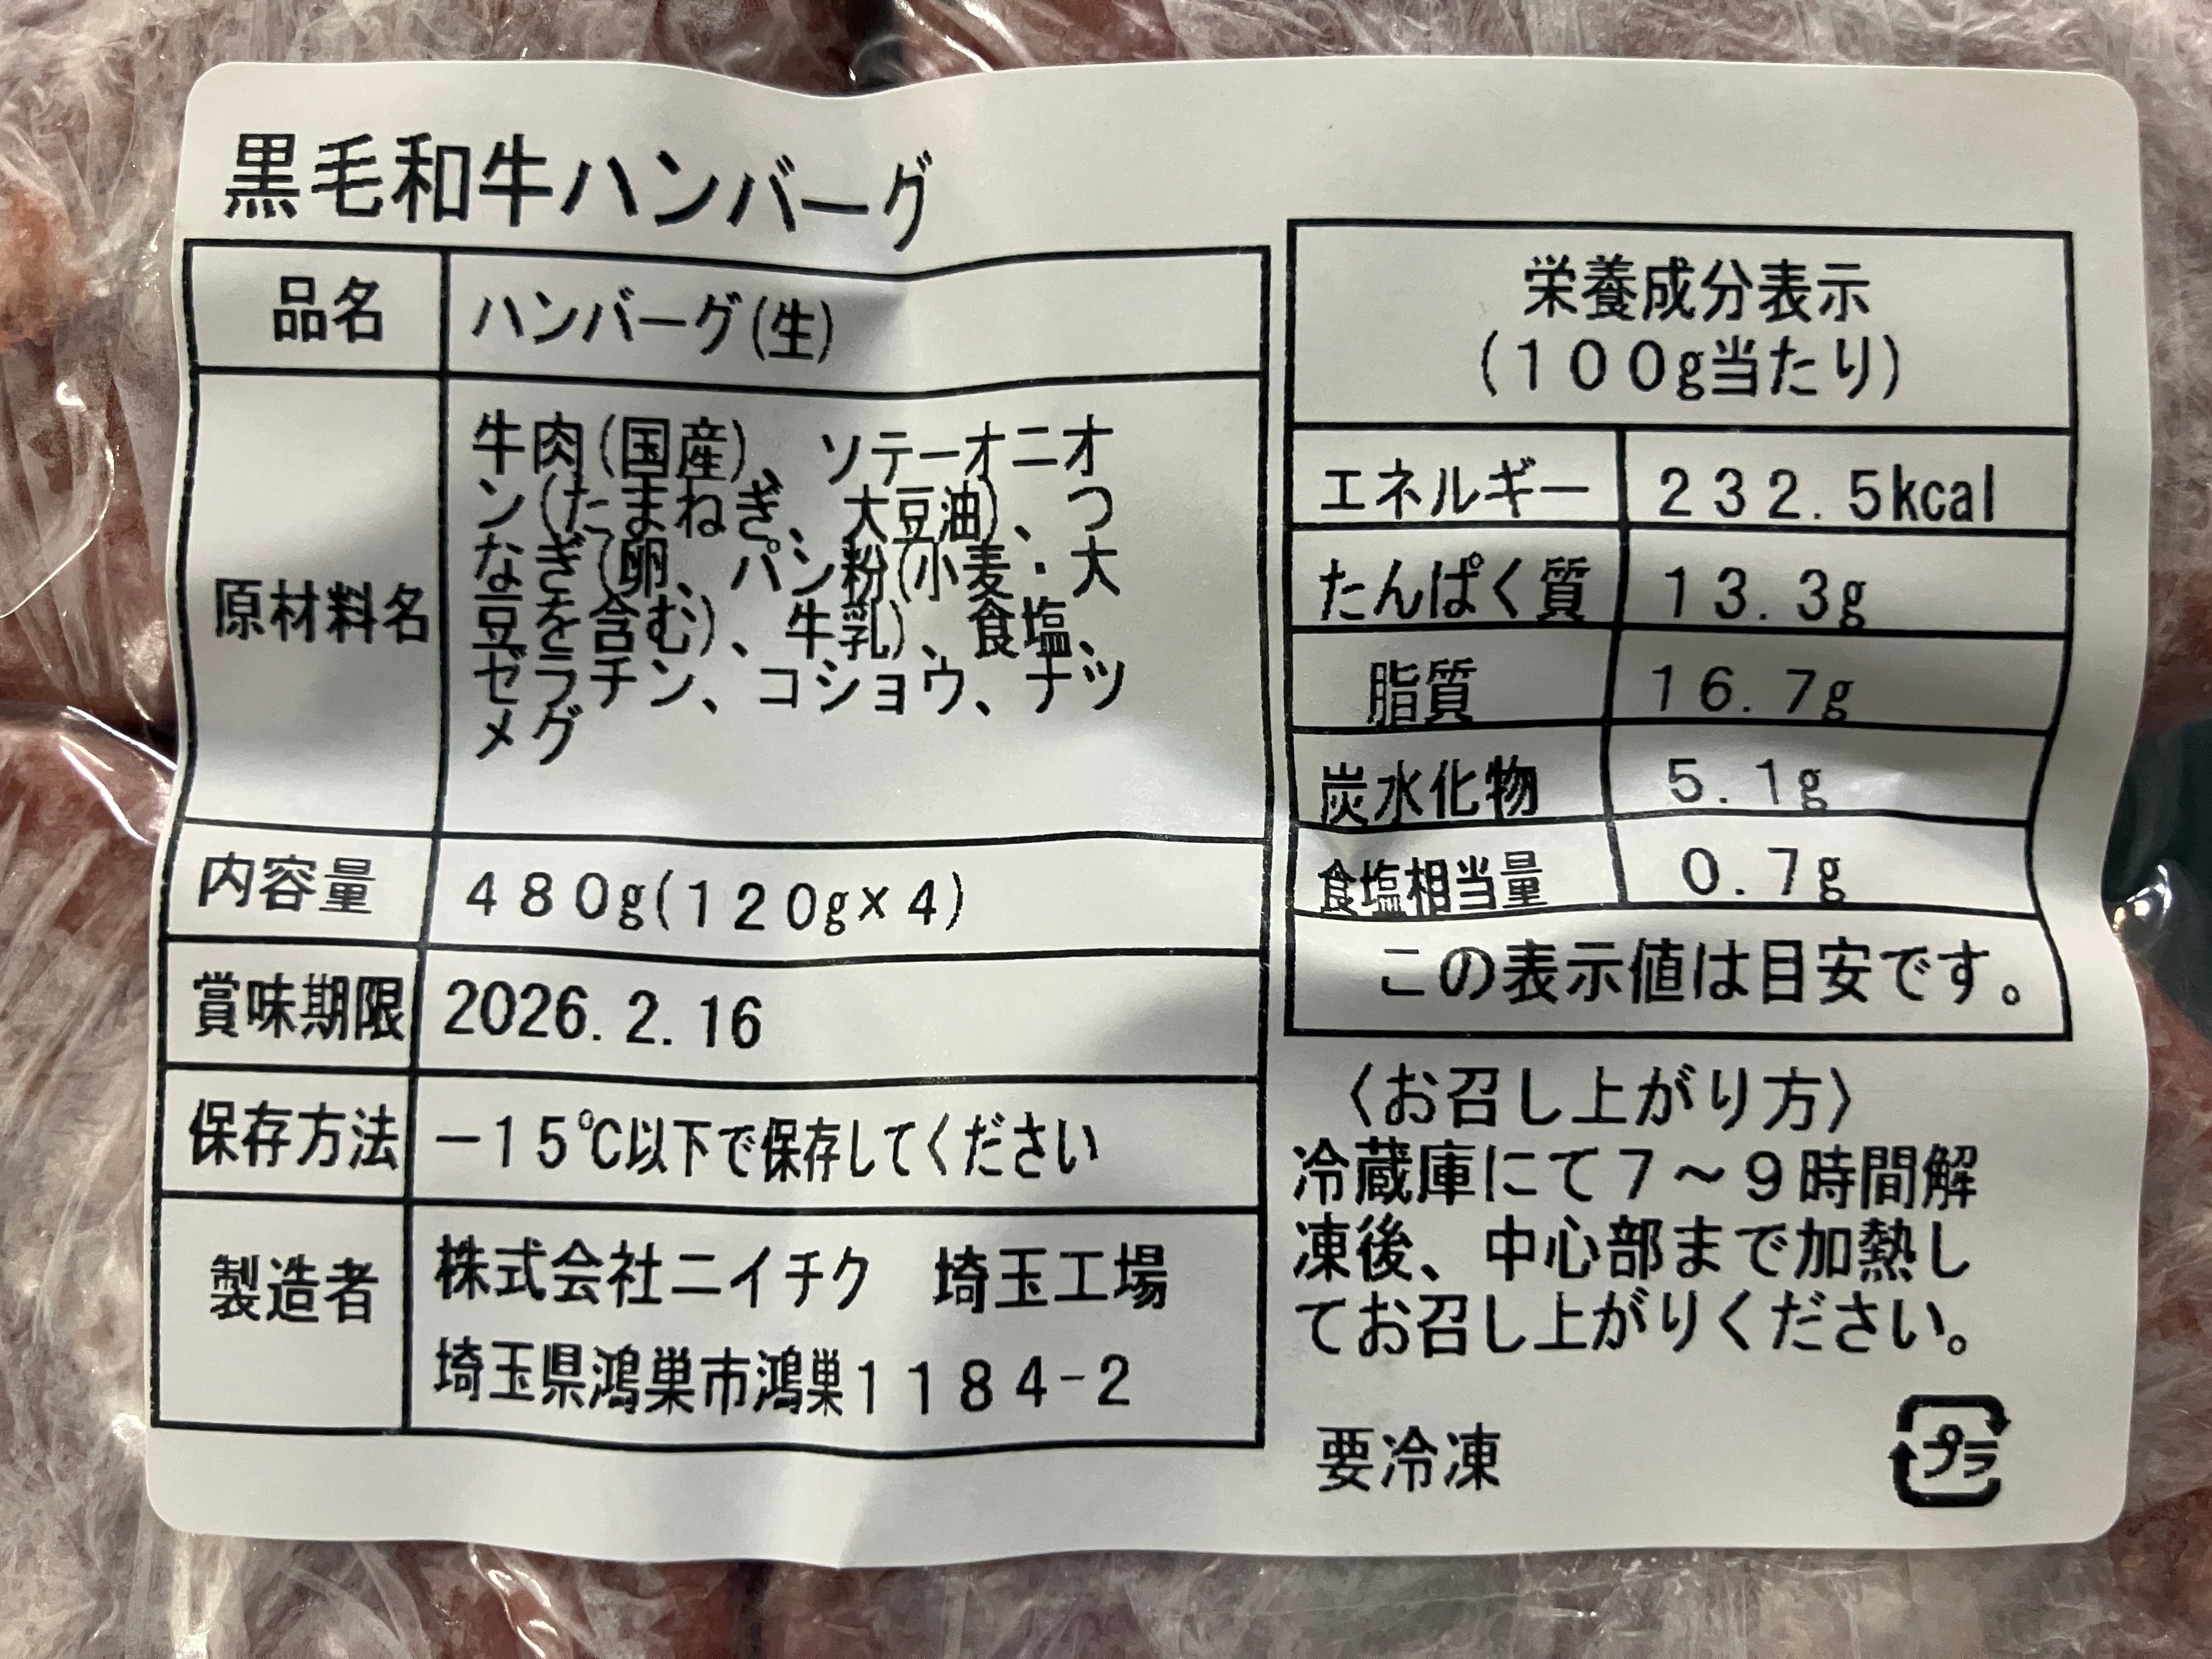 黒毛和牛ハンバーグ
品名 ハンバーグ(生)
原材料名
牛肉(国産)、ソテーオニオ
ン(たまねぎ、大豆油)、つ
なぎ(卵、パン粉(小麦・大
豆を含む)、牛乳)、食塩、
ゼラチン、コショウ、ナツ
メグ
内容量 480g(120g×4)
賞味期限 2026.2.16
保存方法 −15℃以下で保存してください
製造者 株式会社ニイチク 埼玉工場
埼玉県鴻巣市鴻巣1184-2
栄養成分表示
(100g当たり)
エネルギー 232.5kcal
たんぱく質 13.3g
脂質 16.7g
炭水化物 5.1g
食塩相当量 0.7g
この表示値は目安です。
〈お召し上がり方〉
冷蔵庫にて7～9時間解
凍後、中心部まで加熱し
てお召し上がりください。
要冷凍
プラ